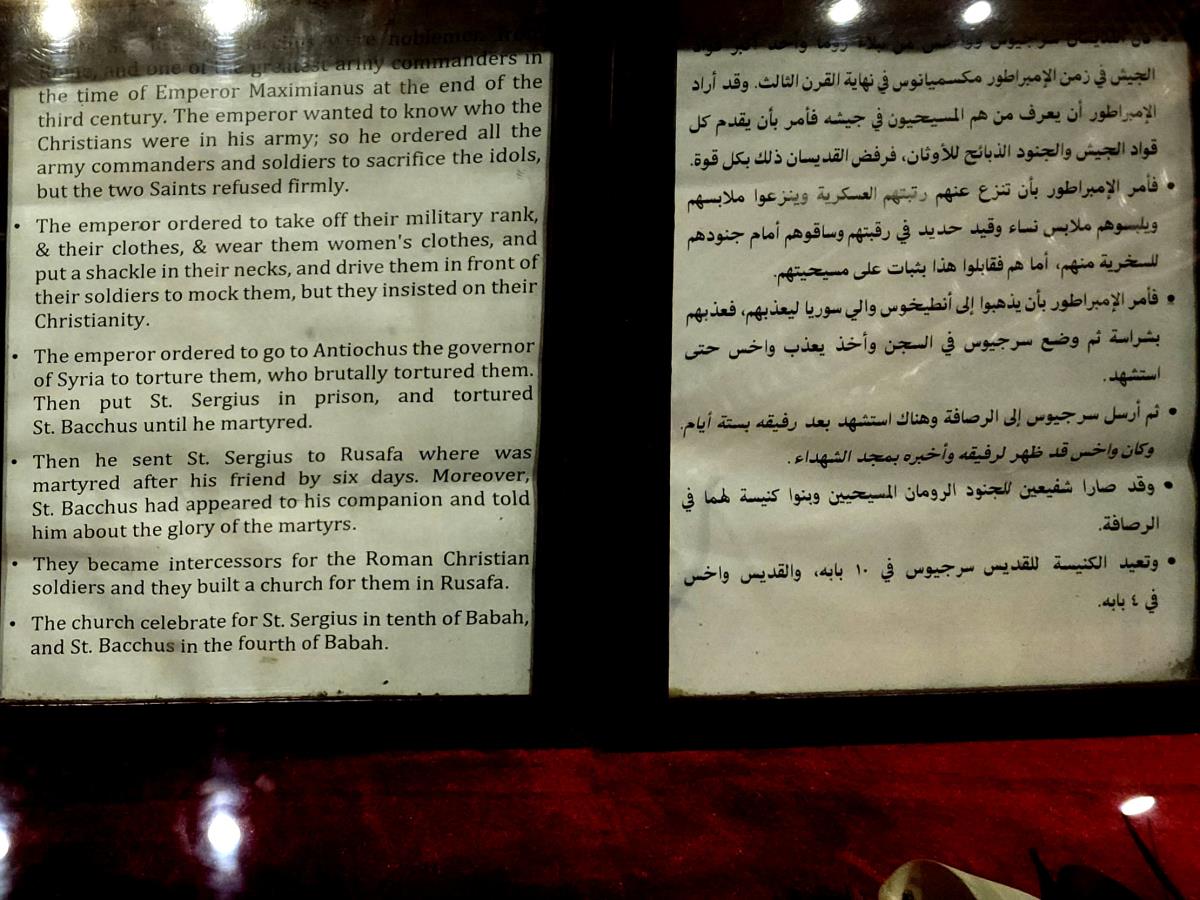 were noblemen, from
Rome, and one of the greatest army commanders in
the time of Emperor Maximianus at the end of the
third century. The emperor wanted to know who the
Christians were in his army; so he ordered all the
army commanders and soldiers to sacrifice the idols,
but the two Saints refused firmly.
• The emperor ordered to take off their military rank,
& their clothes, & wear them women's clothes, and
put a shackle in their necks, and drive them in front of
their soldiers to mock them, but they insisted on their
Christianity.
• The emperor ordered to go to Antiochus the governor
of Syria to torture them, who brutally tortured them.
Then put St. Sergius in prison, and tortured
St. Bacchus until he martyred.
• Then he sent St. Sergius to Rusafa where was
martyred after his friend by six days. Moreover,
St. Bacchus had appeared to his companion and told
him about the glory of the martyrs.
• They became intercessors for the Roman Christian
soldiers and they built a church for them in Rusafa.
• The church celebrate for St. Sergius in tenth of Babah,
and St. Bacchus in the fourth of Babah.
• كان القديسان سرجيوس وواخس من نبلاء روما وأحد أكبر قواد
الجيش في زمن الإمبراطور مكسميانوس في نهاية القرن الثالث. وقد أراد
الإمبراطور أن يعرف من هم المسيحيون في جيشه فأمر بأن يقدم كل
قواد الجيش والجنود الذبائح للأوثان، فرفض القديسان ذلك بكل قوة.
• فأمر الإمبراطور بأن تنزع عنهم رتبتهم العسكرية وينزعوا ملابسهم
ويلبسوهم ملابس نساء وقيد حديد في رقبتهم وساقوهم أمام جنودهم
للسخرية منهم، أما هم فقابلوا هذا بثبات على مسيحيتهم.
• فأمر الإمبراطور بأن يذهبوا إلى أنطيخوس والي سوريا ليعذبهم، فعذبهم
بشراسة ثم وضع سرجيوس في السجن وأخذ يعذب واخس حتى
استشهد.
• ثم أرسل سرجيوس إلى الرصافة وهناك استشهد بعد رفيقه بستة أيام.
وكان واخس قد ظهر لرفيقه وأخبره بمجد الشهداء.
• وقد صارا شفيعين للجنود الرومان المسيحيين وبنوا كنيسة لهما في
الرصافة.
• وتعيد الكنيسة للقديس سرجيوس في ١٠ بابه، والقديس واخس
في ٤ بابه.